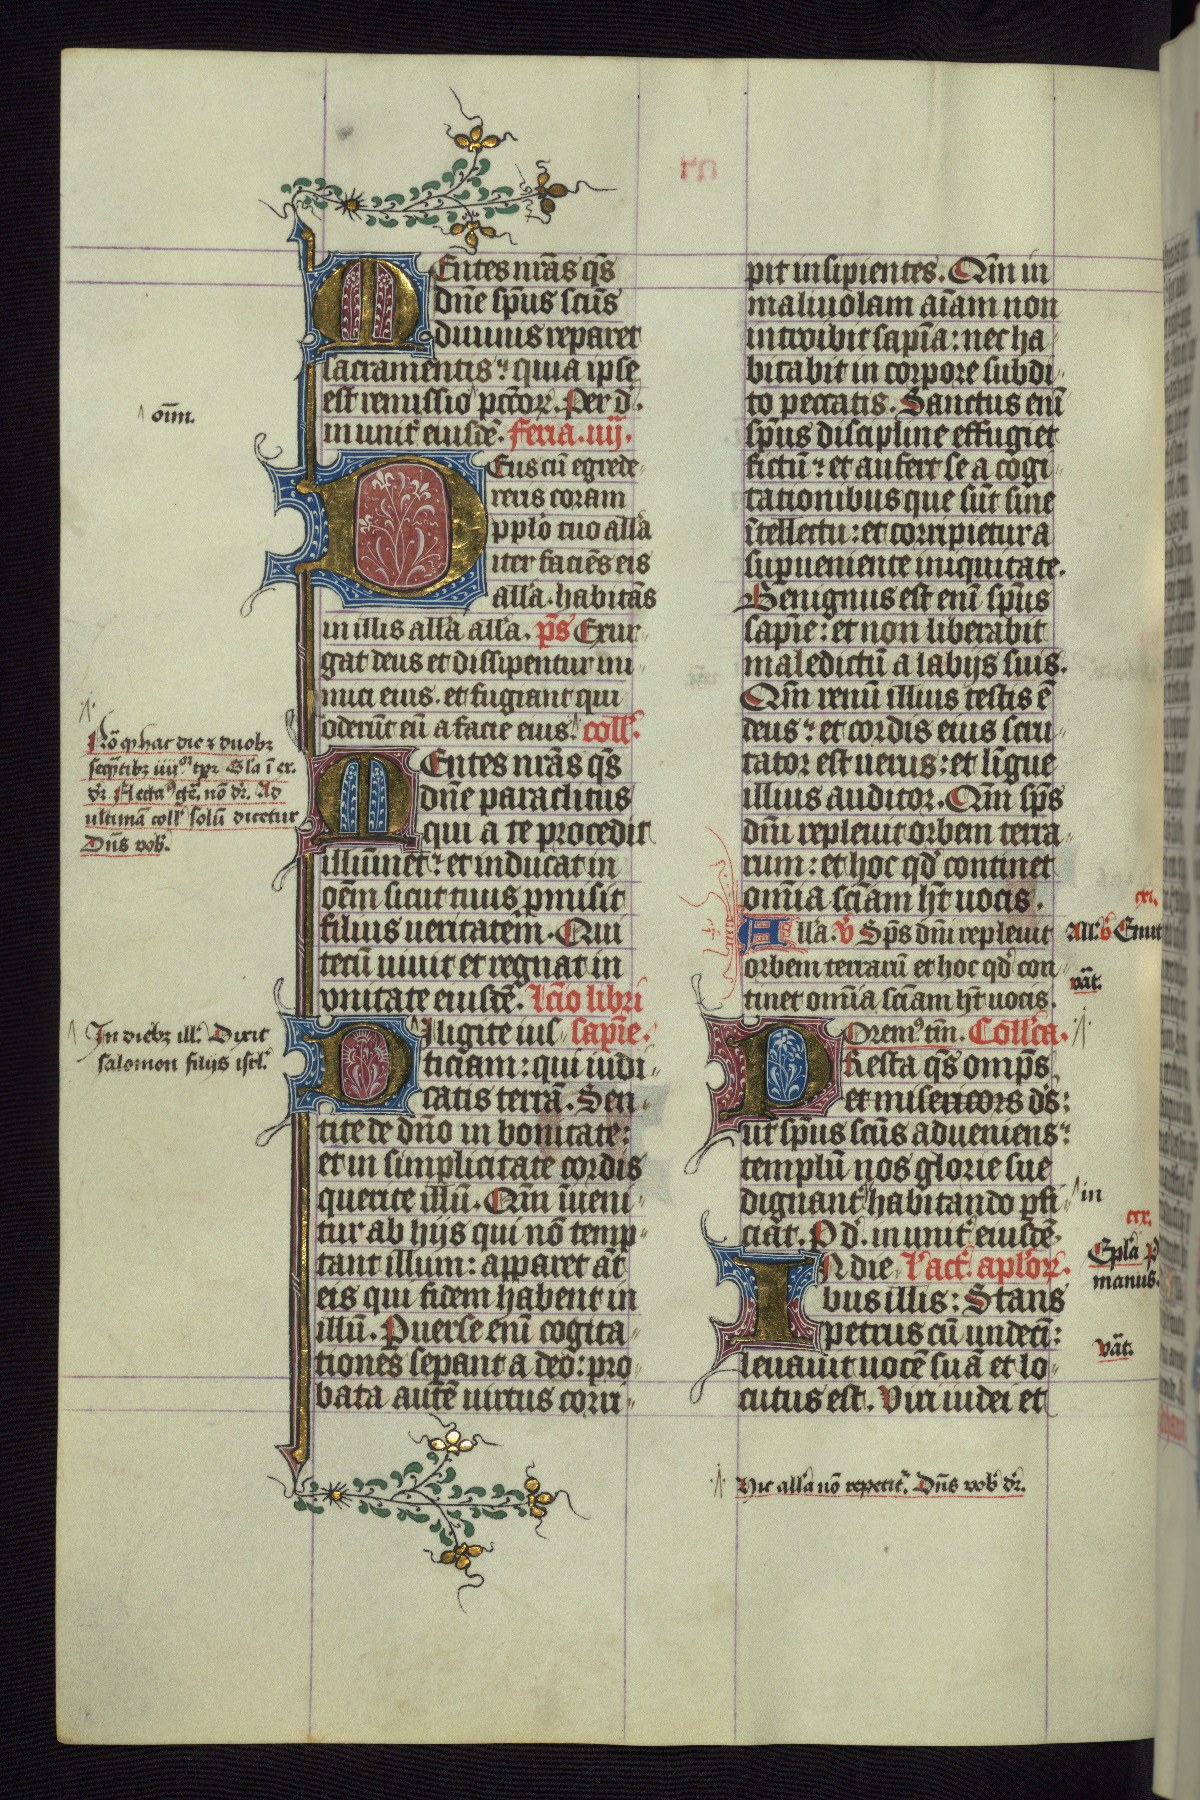 Mentes nr̄as q̄s
dn̄e sp̄us scūs
diuinis reparet
sacramentis: quia ipse
est remissio pcc̄tor. Per d̄.
in unit eiusdē. Feria. iiij.
Deus cū egrede
reris coram
pplo tuo all'a
iter faciēs eis
all'a. habitās
in illis all'a all'a. p̄s Exur
gat deus et dissipentur ini
mici eius. et fugiant qui
oderūt eū a facie eius. coll'.
Mentes nr̄as q̄s
dn̄e paraclitus
qui a te procedit
illūinet: et inducat in
oēm sicut tuus pmisit
filius ueritatem. Qui
tecū uiuit et regnat in
vnitate eiusdē. lc̄io libri
Diligite ius sapīe.
ticiam: qui iudi
catis terrā. Sen
tite de dn̄o in bonitate:
et in simplicitate cordis
querite illū. Qm̄ īueni
tur ab hijs qui nō temp
tant illum: apparet aūt
eis qui fidem habent in
illū. Peruerse enī cogita
tiones sepant a deo: pro
bata autē uirtus corri
pit insipientes. Qm̄ in
maliuolam aīam non
introibit sapīa: nec ha
bitabit in corpore subdi
to peccatis. Sanctus enī
sp̄us discipline effugiet
fictū: et aufert se a cogi
tationibus que sūt sine
ītellectu: et corripietur a
supueniente iniquitate.
Benignus est enī sp̄us
sapīe: et non liberabit
maledictū a labijs suis.
Qm̄ renū illius testis ē
deus: et cordis eius scru
tator est uerus: et līgue
illius auditor. Qm̄ sp̄s
dn̄i repleuit orbem terra
rum: et hoc qd' continet
omīa sciāam h̄t uocis.
All'a. v̄ Sp̄s dn̄i repleuit
orbem terrarū et hoc qd' con
tinet omīa scīam h̄t uocis.
Orem' Coll'ca.
Presta q̄s omp̄s
et misericors d̄s:
ut sp̄us scūs adueniens
templū nos glorie sue
dignant' habitando pfi
ciat. P d̄. in unit' eiusdē.
In die l' act'. aplor.
bus illis: Stans
petrus cū undecī:
leuauit uocē suā et lo
cutus est. Viri iudei et
oīm.
hac die duob'
Gl'a ī ex.
Ad
ultimā coll' solū dicetur
Dn̄s vob'.
In dieb' ill'. Dixit
salomon filijs isrl'.
All'. v̄ Emit
vāt.
in
Epl'a
manus.
vāt.
Hic all'a nō repetit'. Dn̄s vob' d'r.